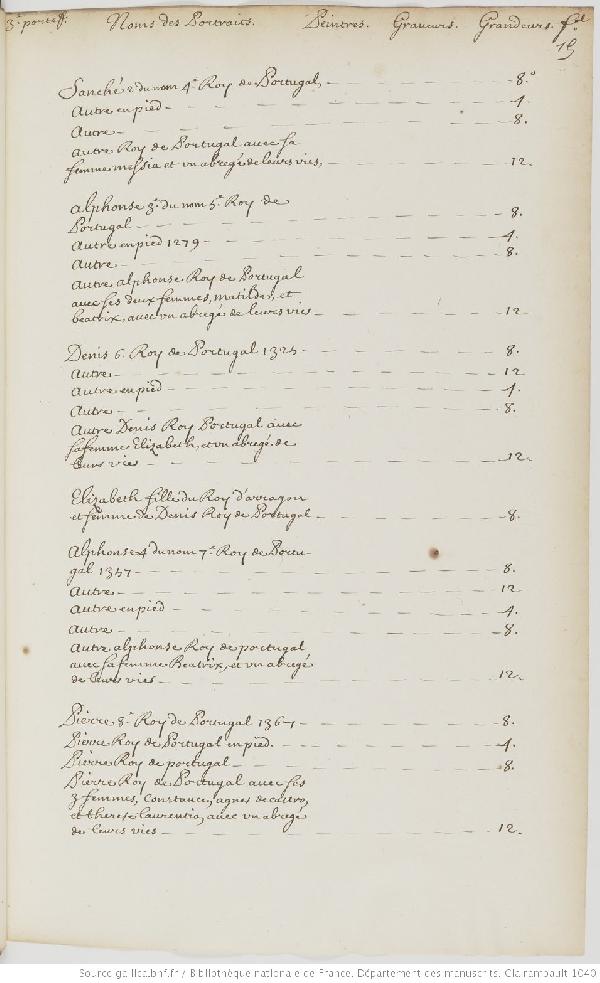 3.e portef. Noms des Portraits. Peintres. Graueurs. Grandeurs. f.
19
Sanché 2 du nom 4.e Roy de Portugal, 8.o
Autre en pied 4
Autre 8.
Autre Roy de Portugal auec sa
femme messia et vn abregé de leurs vies, 12.
Alphonse 3.e du nom 5.e Roy de
Portugal 8.
Autre en pied 1279 4.
Autre 8.
Autre alphonse Roy de Portugal
auec ses deux femmes, matilde, et
beatrix, auec vn abregé de leurs vies 12
Denis 6. Roy de Portugal 1325 8.
Autre 12
Autre en pied 4.
Autre 8.
Autre Denis Roy Portugal auec
sa femme Elizabeth, et vn abregé de
leurs vies 12.
Elizabeth fille du Roy d'arragon
et femme de Denis Roy de Portugal 8.
Alphonse 4 du nom 7.e Roy de Portu-
gal 1357 8.
Autre 12
Autre en pied 4.
Autre 8.
Autre alphonse Roy de portugal
auec sa femme Beatrix, et vn abregé
de leurs vies 12.
Pierre 8.e Roy de Portugal 1367 8.
Pierre Roy de Portugal en pied. 4.
Pierre Roy de portugal 8.
Pierre Roy de Portugal auec ses
3 femmes, Constance, agnes de castro,
et therese laurentia, auec vn abregé
de leurs vies 12.
Source gallica.bnf.fr / Bibliothèque nationale de France. Département des manuscrits. Clairambault 1040